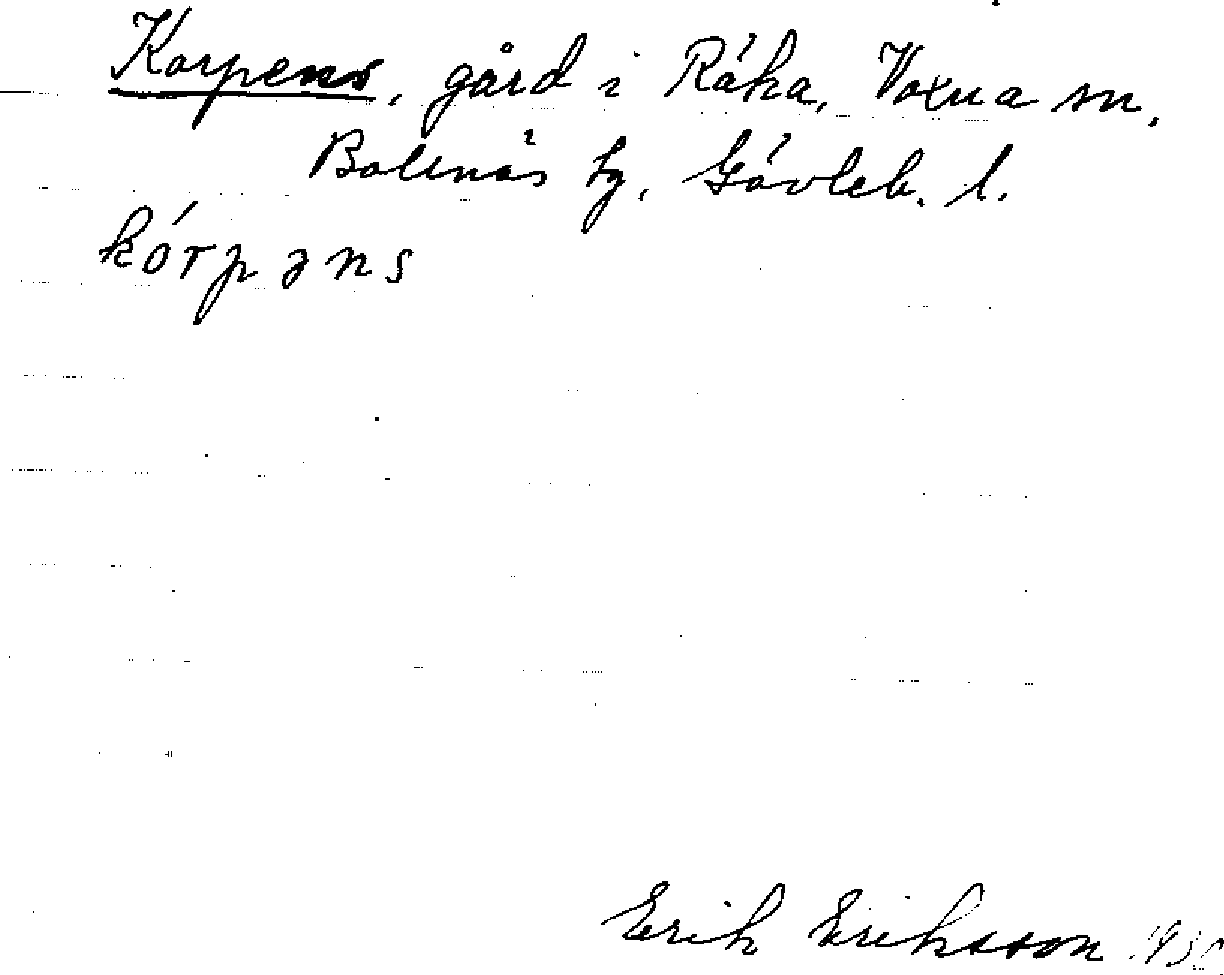 Korpens, gård i Råka, Voxna sn,
Bollnäs tg, Gävleb. l.
kórpəns
Erik Eriksson